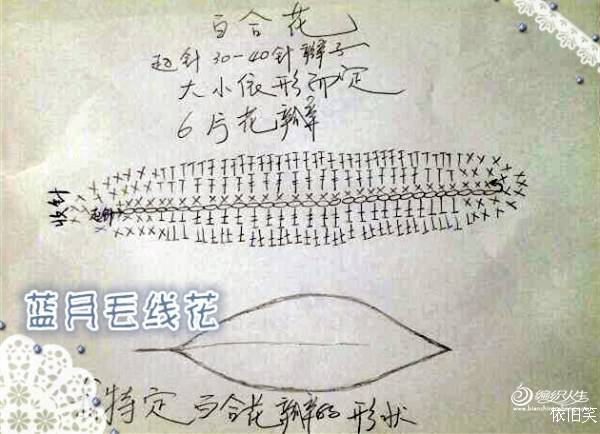 百合花
起针30-40针辫子
大小依形而定
6片花瓣
收针
起针
蓝月毛线花
特定百合花瓣的形状
编织人生
依旧笑